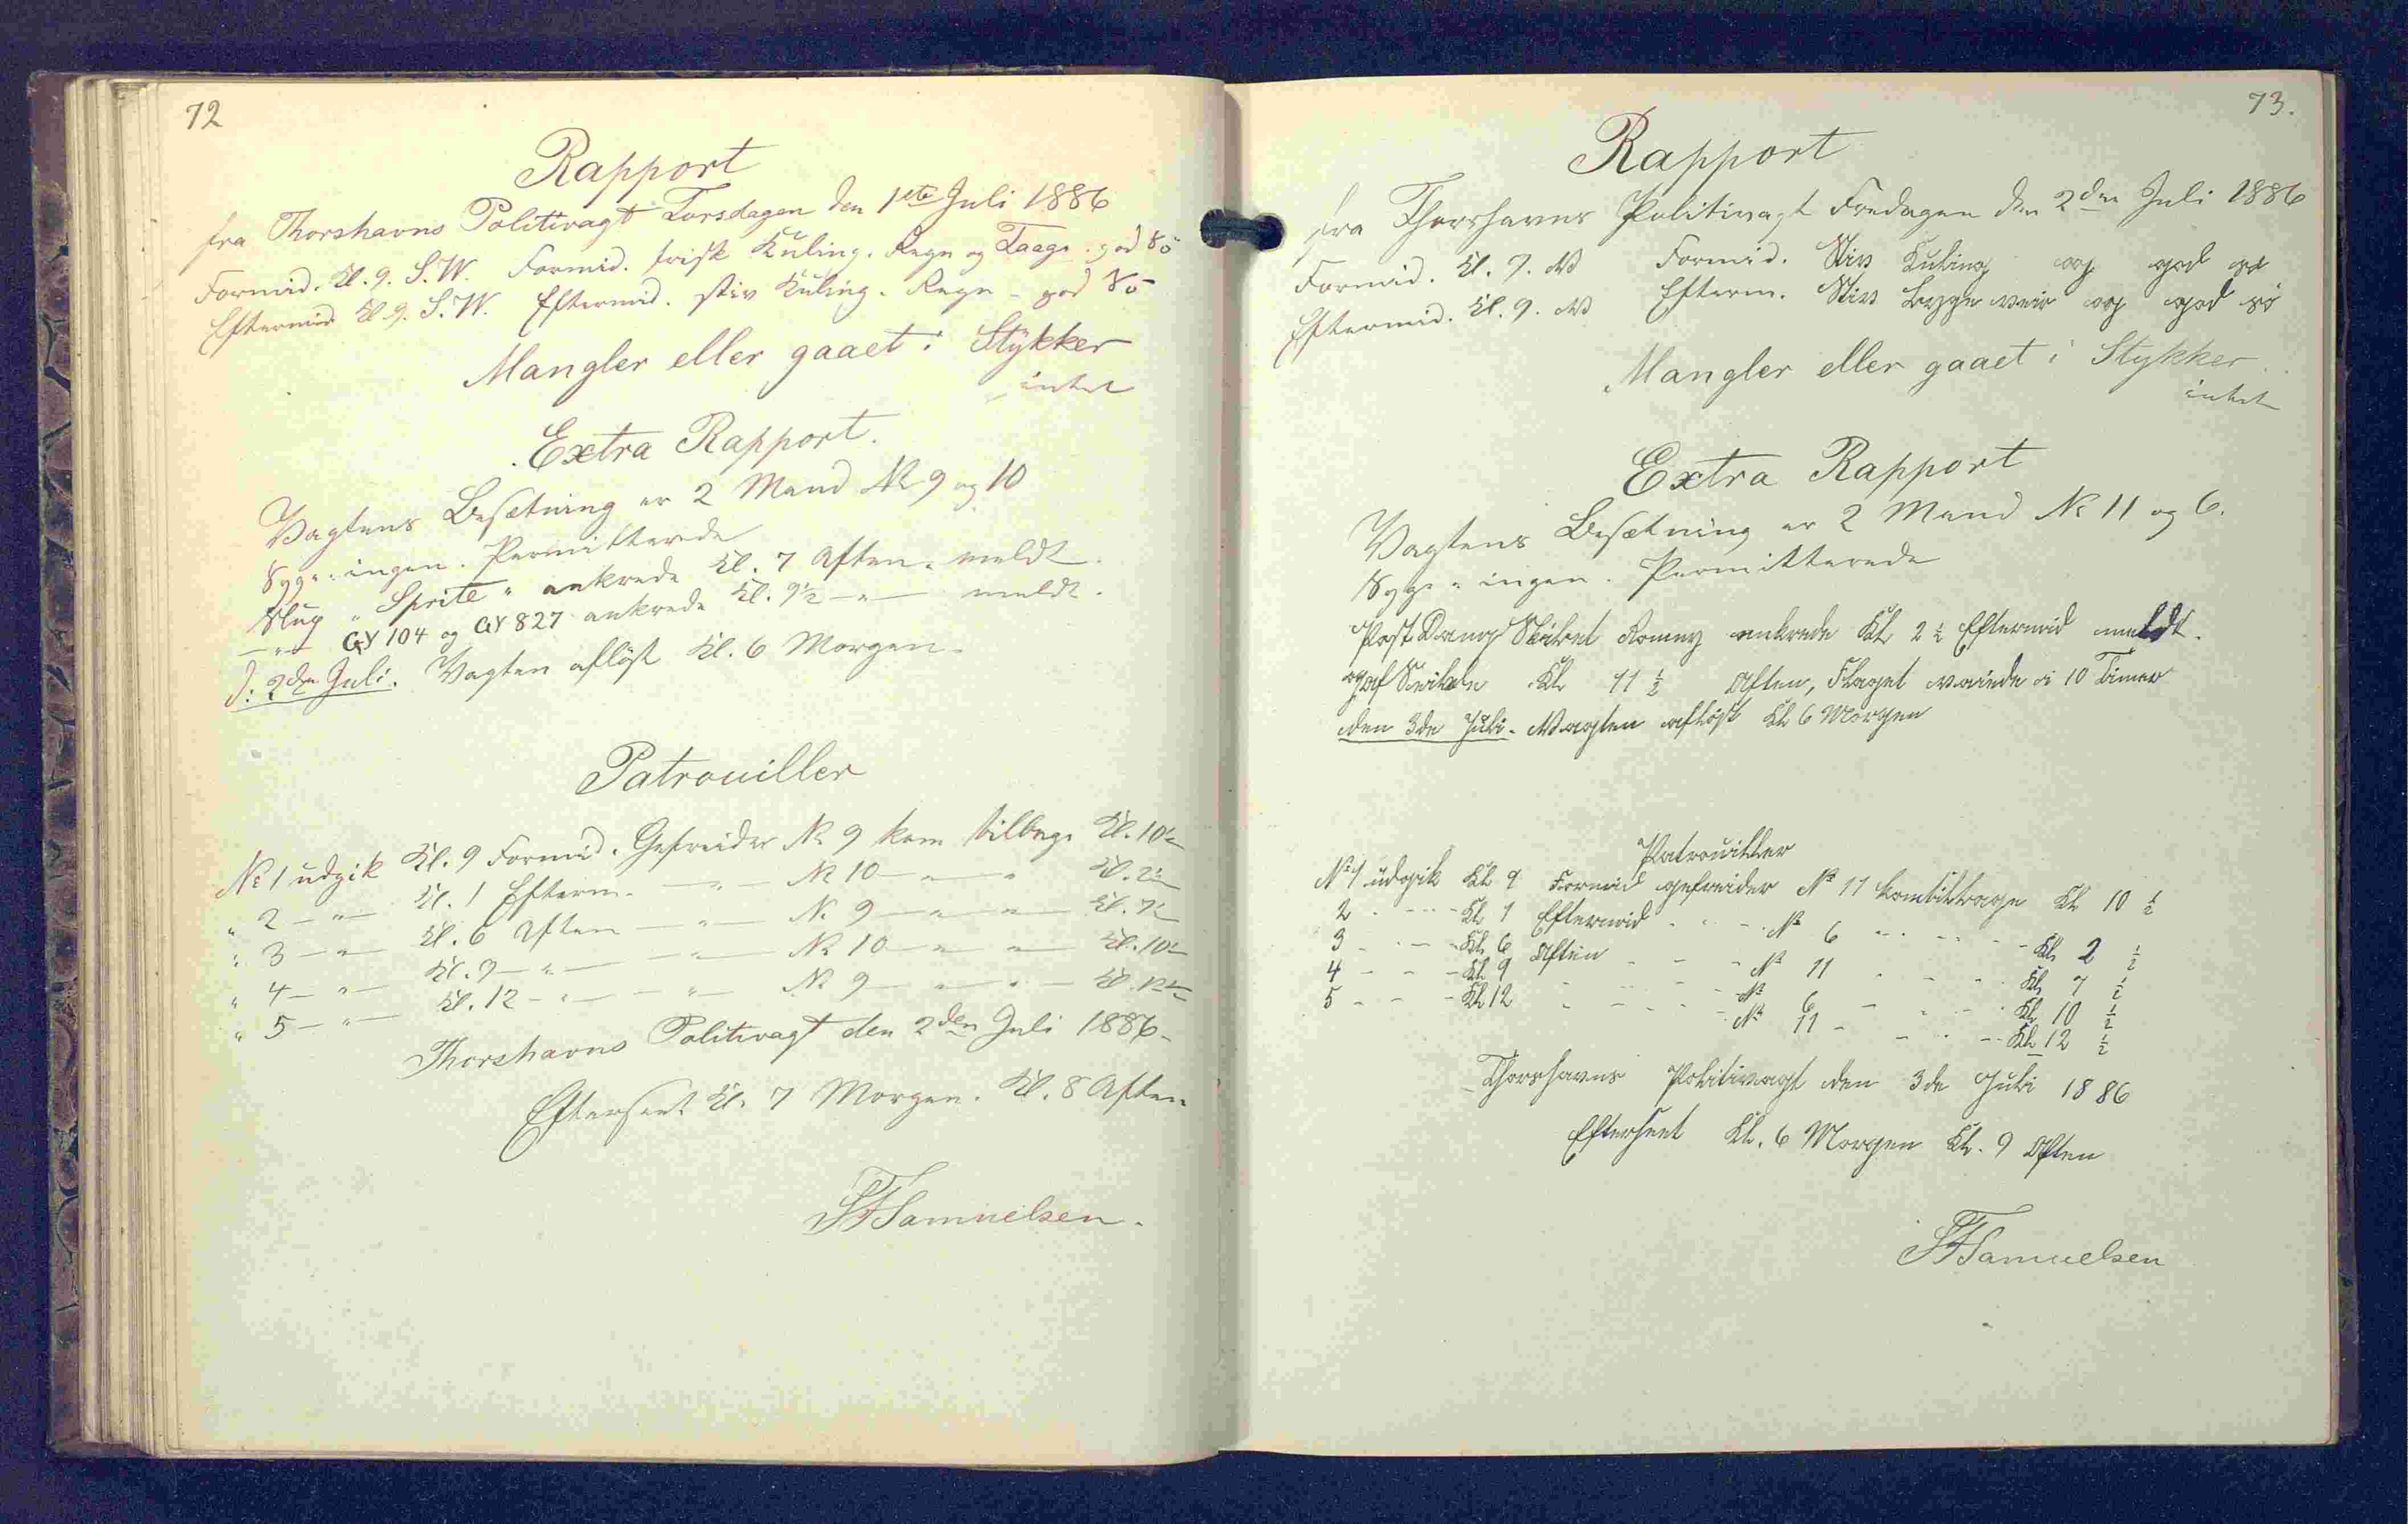 72
Rapport
fra Thorshavns Politivagt Torsdagen den 1ste Juli 1886
Formid. Kl. 9. S.W. Formid. frisk Kuling. Regn og Taage. god Sö
Eftermid Kl. 9. S.W. Eftermid. stiv Kuling. Regn - god Sö
Mangler eller gaaet i Stykker
intet
Extra Rapport.
Vagtens Besætning er 2 Mand № 9 og 10
Syge: ingen. Permitterede
Slup "Sprite" ankrede Kl. 7 Aften. meldt.
— " — GY 104 og GY 827 ankrede Kl. 9½ — " — meldt.
D: 2den Juli. Vagten aflöst Kl. 6 Morgen.
Patrouiller
№ 1 udgik Kl. 9 Formid. Gefreider № 9 kom tilbage Kl. 10½
" 2 — " — Kl. 1 Efterm. — " — № 10 — " — " Kl. 2½
" 3 — " — Kl. 6 Aften — " — № 9 — " — " — Kl. 7½
" 4 — " — Kl. 9 — " — — " — № 10 — " — " — Kl. 10½
" 5 — " — Kl. 12 — " — — " — № 9 — " — " — Kl. 12½
Thorshavns Politivagt den 2den Juli 1886.
Efterseet Kl. 7 Morgen. Kl. 8 Aften.
SFSamuelsen.
73.
Rapport
fra Thorshavns Politivagt Fredagen den 2den Juli 1886
Formid. Kl. 9. W Formid. Stiv Kuling og god sö
Eftermid. Kl. 9. W Efterm. Stiv Bygeveir og god sö
Mangler eller gaaet i Stykker.
intet
Extra Rapport
Vagtens Besætning er 2 Mand № 11 og 6.
Syge: ingen. Permitterede
Post Damp Skibet Romny ankrede Kl 2½ Eftermid meldt.
gaf Kl 11½ Aften, Flaget vaiede i 10 Timer
den 3de Juli. Vagten aflöst Kl 6 Morgen
Patrouiller
№ 1 udgik Kl 9 Formid gefreider № 11 komtilbage Kl 10 ½
2 - - - - Kl 1 Eftermid - - - № 6 - - - - - Kl 2 ½
3 - - - - Kl 6 Aften - - - № 11 - - - - Kl 7 ½
4 - - - Kl 9 - - - - - № 6 - - - - Kl 10 ½
5 - - - Kl 12 - - - - - № 11 - - - - Kl 12 ½
Thorshavns Politivagt den 3de Juli 1886
Efterseet Kl. 6 Morgen Kl. 9 Aften
SFSamuelsen